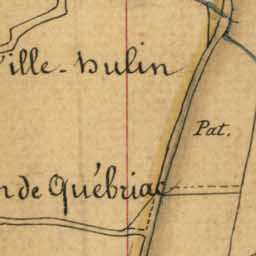 ille-hulin
Pat.
de Québriac